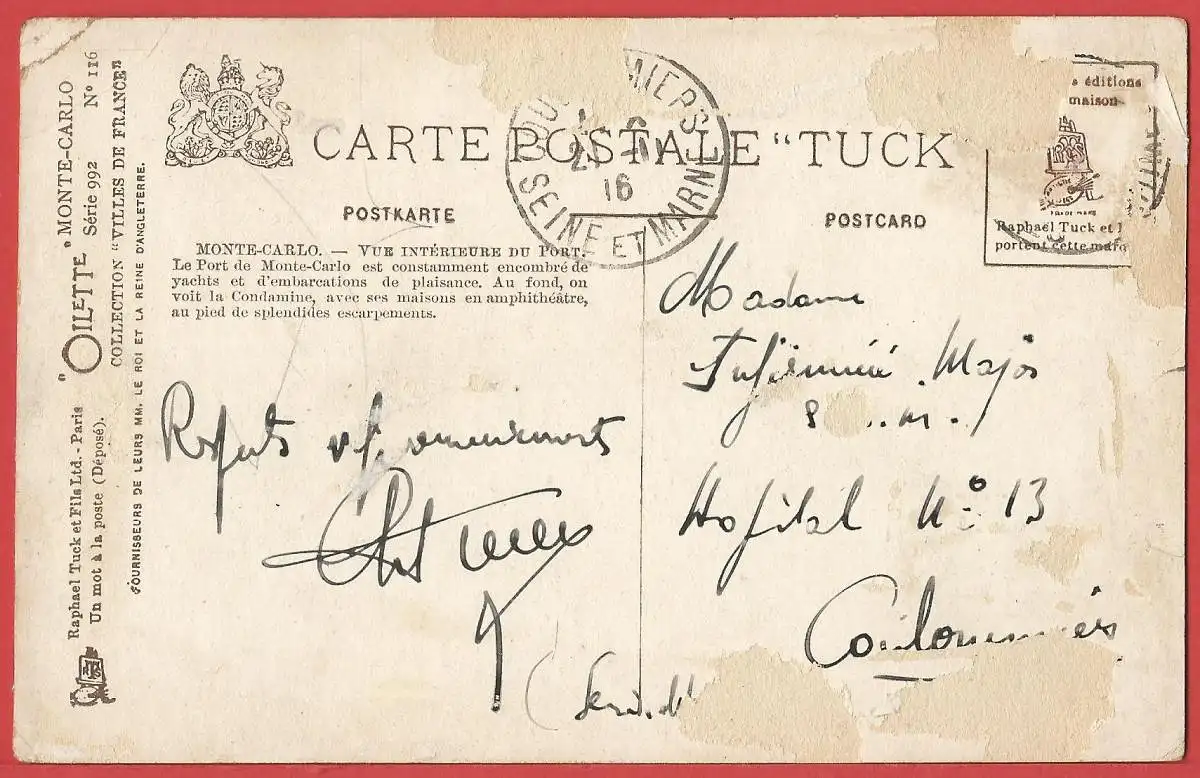 Raphael Tuck et Fils Ltd. - Paris "OILETTE" MONTE-CARLO
Un mot à la poste (Déposé). Série 992 N° 116
COLLECTION "VILLES DE FRANCE"
FOURNISSEURS DE LEURS MM. LE ROI ET LA REINE D'ANGLETERRE.
CARTE POSTALE "TUCK
POSTKARTE POSTCARD
MONTE-CARLO. — VUE INTÉRIEURE DU PORT.
Le Port de Monte-Carlo est constamment encombré de
yachts et d'embarcations de plaisance. Au fond, on
voit la Condamine, avec ses maisons en amphithéâtre,
au pied de splendides escarpements.
MIERS
16
SEINE ET MARNE
éditions
maison
Raphaël Tuck et
portent cette
Madame
Major
Hopital N° 13
Coulommiers